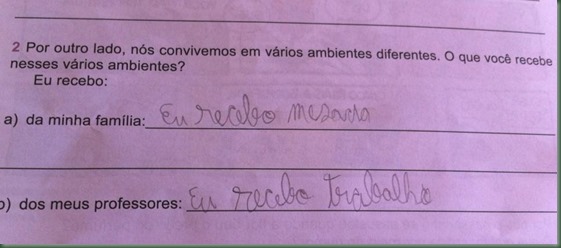 2 Por outro lado, nós convivemos em vários ambientes diferentes. O que você recebe
nesses vários ambientes?
Eu recebo:
a) da minha família: Eu recebo mesada
b) dos meus professores: Eu recebo trabalho